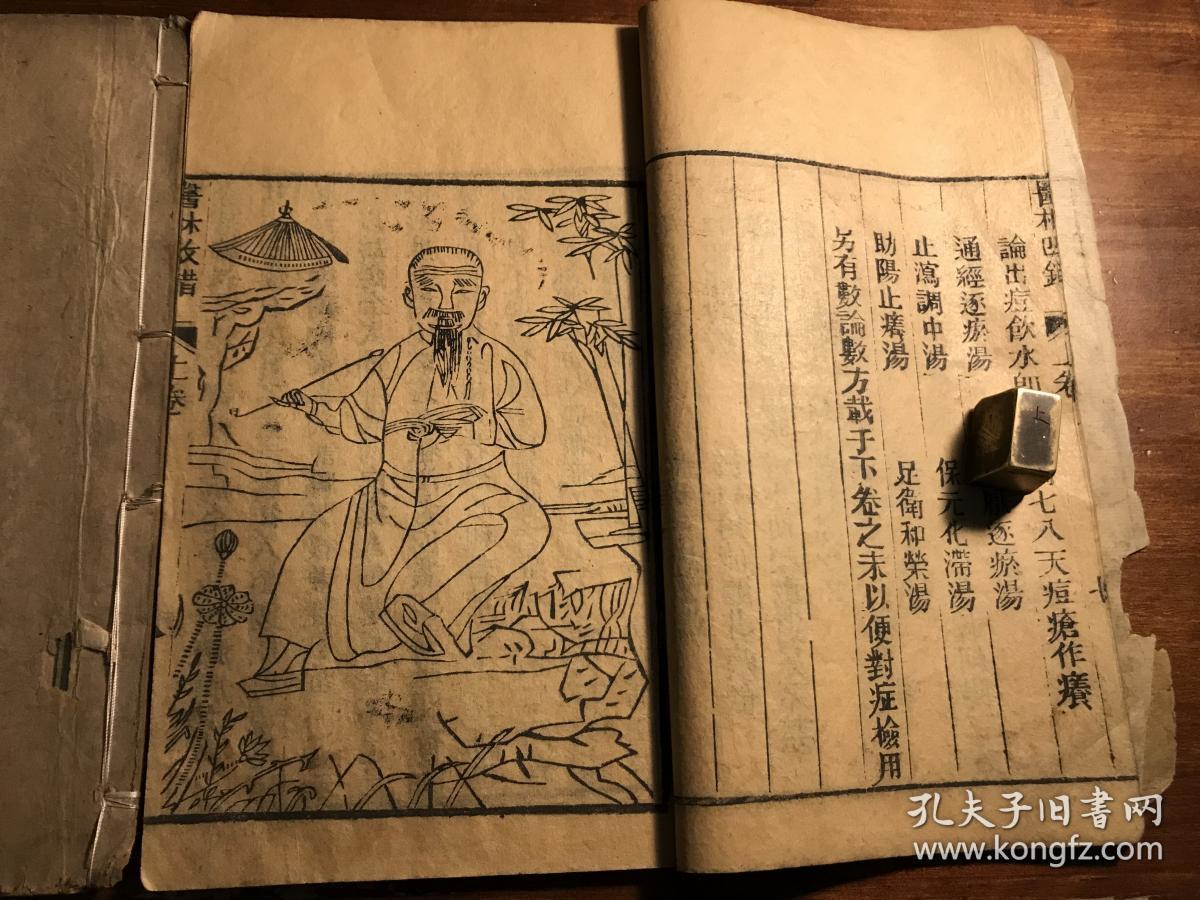 論出痘飲水即
七八天痘瘡作癢
通經逐瘀湯
逐瘀湯
止瀉調中湯
保元化滯湯
助陽止癢湯
足衛和榮湯
另有數論數方載于下卷之末以便對症檢用
醫林改錯
上卷
孔夫子旧书网
www.kongfz.com